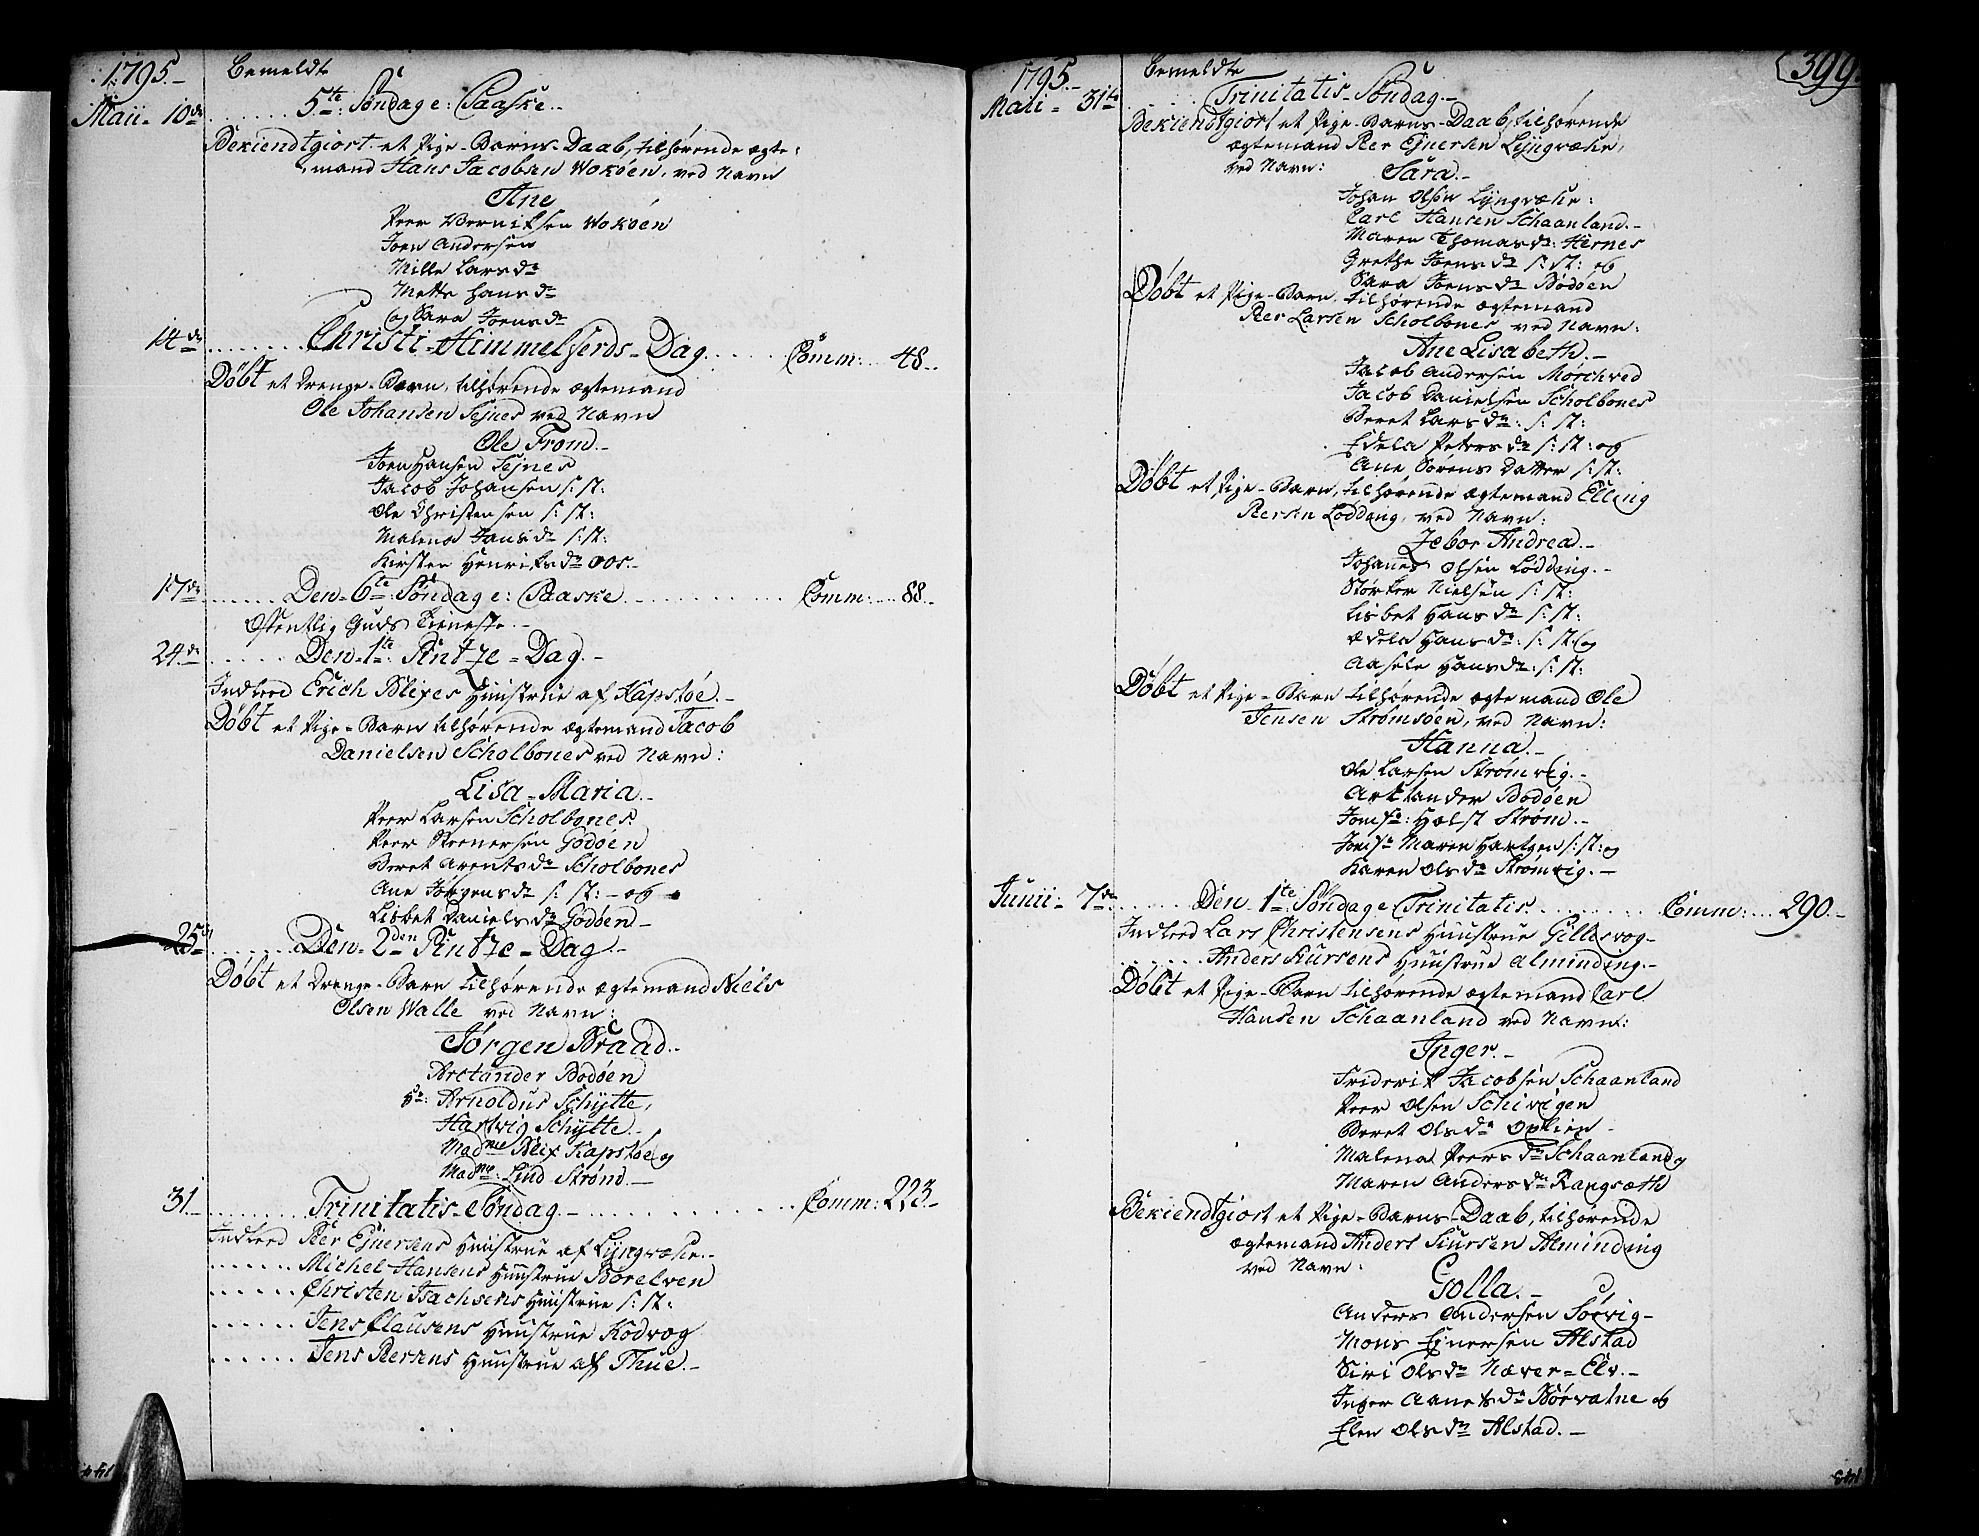 1795.-
Bemeldte
Maii - 10de ....... 5te Søndag e: Paaske.-
Bekiendtgiort et Pige-Barns-Daab, tilhørende ægte:
mand Hans Jacobsen Wokøen, ved Navn
Ane
Peer Bernitsen Wokøen
Joen Andersen
Mille Larsdr
Mette Hansdr
og Sara Joensdr
14de ........ Christi-Himmelferds-Dag ..... Comm: .... 48..
Døbt et Drenge-Barn, tilhørende ægtemand
Ole Johansen Sejnes ved Navn
Ole From.-
Joen Hansen Sejnes
Jacob Johansen S: St:
Ole Christensen S: St:
Malena Jansdr S: St:
Kirsten Henriksdr Oos.-
17de ...... Den 6te Søndag e: Paaske ............ Comm: .... 88..
Offentlig Guds Tieneste.-
24de ..... Den 1te: Pintze-Dag.-
Indleed Erich Blixes Huustrue af Kapstøe.-
Døbt et Pige-Barn tilhørende Ægtemand Jacob
Danielsen Scholbones ved Navn:
Lisa-Maria.-
Peer Larsen Scholbones
Peer Steenersen Godøen
Beret Arentsdr Scholbones
Ane Jørgensdr S: St: - og
Lisbet Danielsdr Godøen-
25de ...... Den 2den Pintze-Dag.-
Døbt et Drenge-Barn tilhørende Ægtemand Niels
Olsen Walle ved Navn:
Jørgen Braad.-
Arctander Bodøen
Hr: Arnoldus Schytte,
Hartvig Schytte.-
Madme Blix Kapstøe og
Madme: Lind Strønd.-
31.- ....... Trinitatis-Søndag.- .......... Comm: 223.-
Indleed Peer Ejnersens Huustrue af Lyngvæhr.-
...... Michel Hansens Huustrue Børelven
...... Christen Isachsens Huustrue S: St:
...... Jens Clausens Huustrue Kodvog
...... Jens Peersens Huustrue af Thue.-
1795.-
Bemeldte
399.
Maii - 31te ..... Trinitatis-Søndag.-
Bekiendtgiort et Pige-Barns-Daab, tilhørende
ægtemand Peer Ejnersen Lyngvæhr,
ved Navn:
Sara.-
Johan Olsen Lyngvæhr:
Carl Hansen Schaanland.-
Maren Thomasdr: Hernes
Grethe Joensdr S: St: og
Sara Joensdr Bodøen
Døbt et Pige-Barn, tilhørende ægtemand
Peer Larsen Scholbones, ved Navn:
Ane Lisabeth.-
Jacob Andersen Mørchved
Jacob Danielsen Scholbones
Beret Larsdr: S: St:
Edela Petersdr S: St: og
Ane Sørens Datter S: St:
Døbt et Pige-Barn, tilhørende ægtemand Elling
Peersen Lødding, ved Navn:
Zebor Andrea.-
Johanes Olsen Lødding.-
Størker Nielsen S: St:
Lisbet Hansdr S: St:
Ædela Hansdr: S: St: og
Aasele Hansdr: S: St:
Døbt et Pige-Barn tilhørende ægtemand Ole
Jensen Strømsøen, ved Navn:
Hanna.-
Ole Larsen Strømvig.-
Arctander Bodøen
Jomfr: Holst Strøm.-
Jomfr Maren Hartgen S: St: og
Karen Olsdr Strømvig.-
Junii - 7de ...... Den 1te Søndag e Trinitatis ......... Comm: ... 290.-
Indleed Lars Christensens Huustrue Gillesvog-
...... Anders Siursens Huustrue Alminding.-
Døbt et Pige-Barn tilhørende ægtemand Carl
Hansen Schaanland ved Navn:
Inger.-
Friderik Jacobsen Schaanland
Peer Olsen Schivigen
Beret Olsdr Ophien
Malena Peersdr Schaanland og
Maren Andersdr Rangsæth
Bekiendtgiort et Pige-Barns-Daab, tilhørende
ægtemand Anders Siursen Alminding
ved Navn:
Golla.-
Anders Andersen Sørvig-
Mons Ejnersen Alstad
Siri Olsdr Næver-Elv.-
Inger Aanetsdr Børvatne og
Elen Olsdr Alstad.-